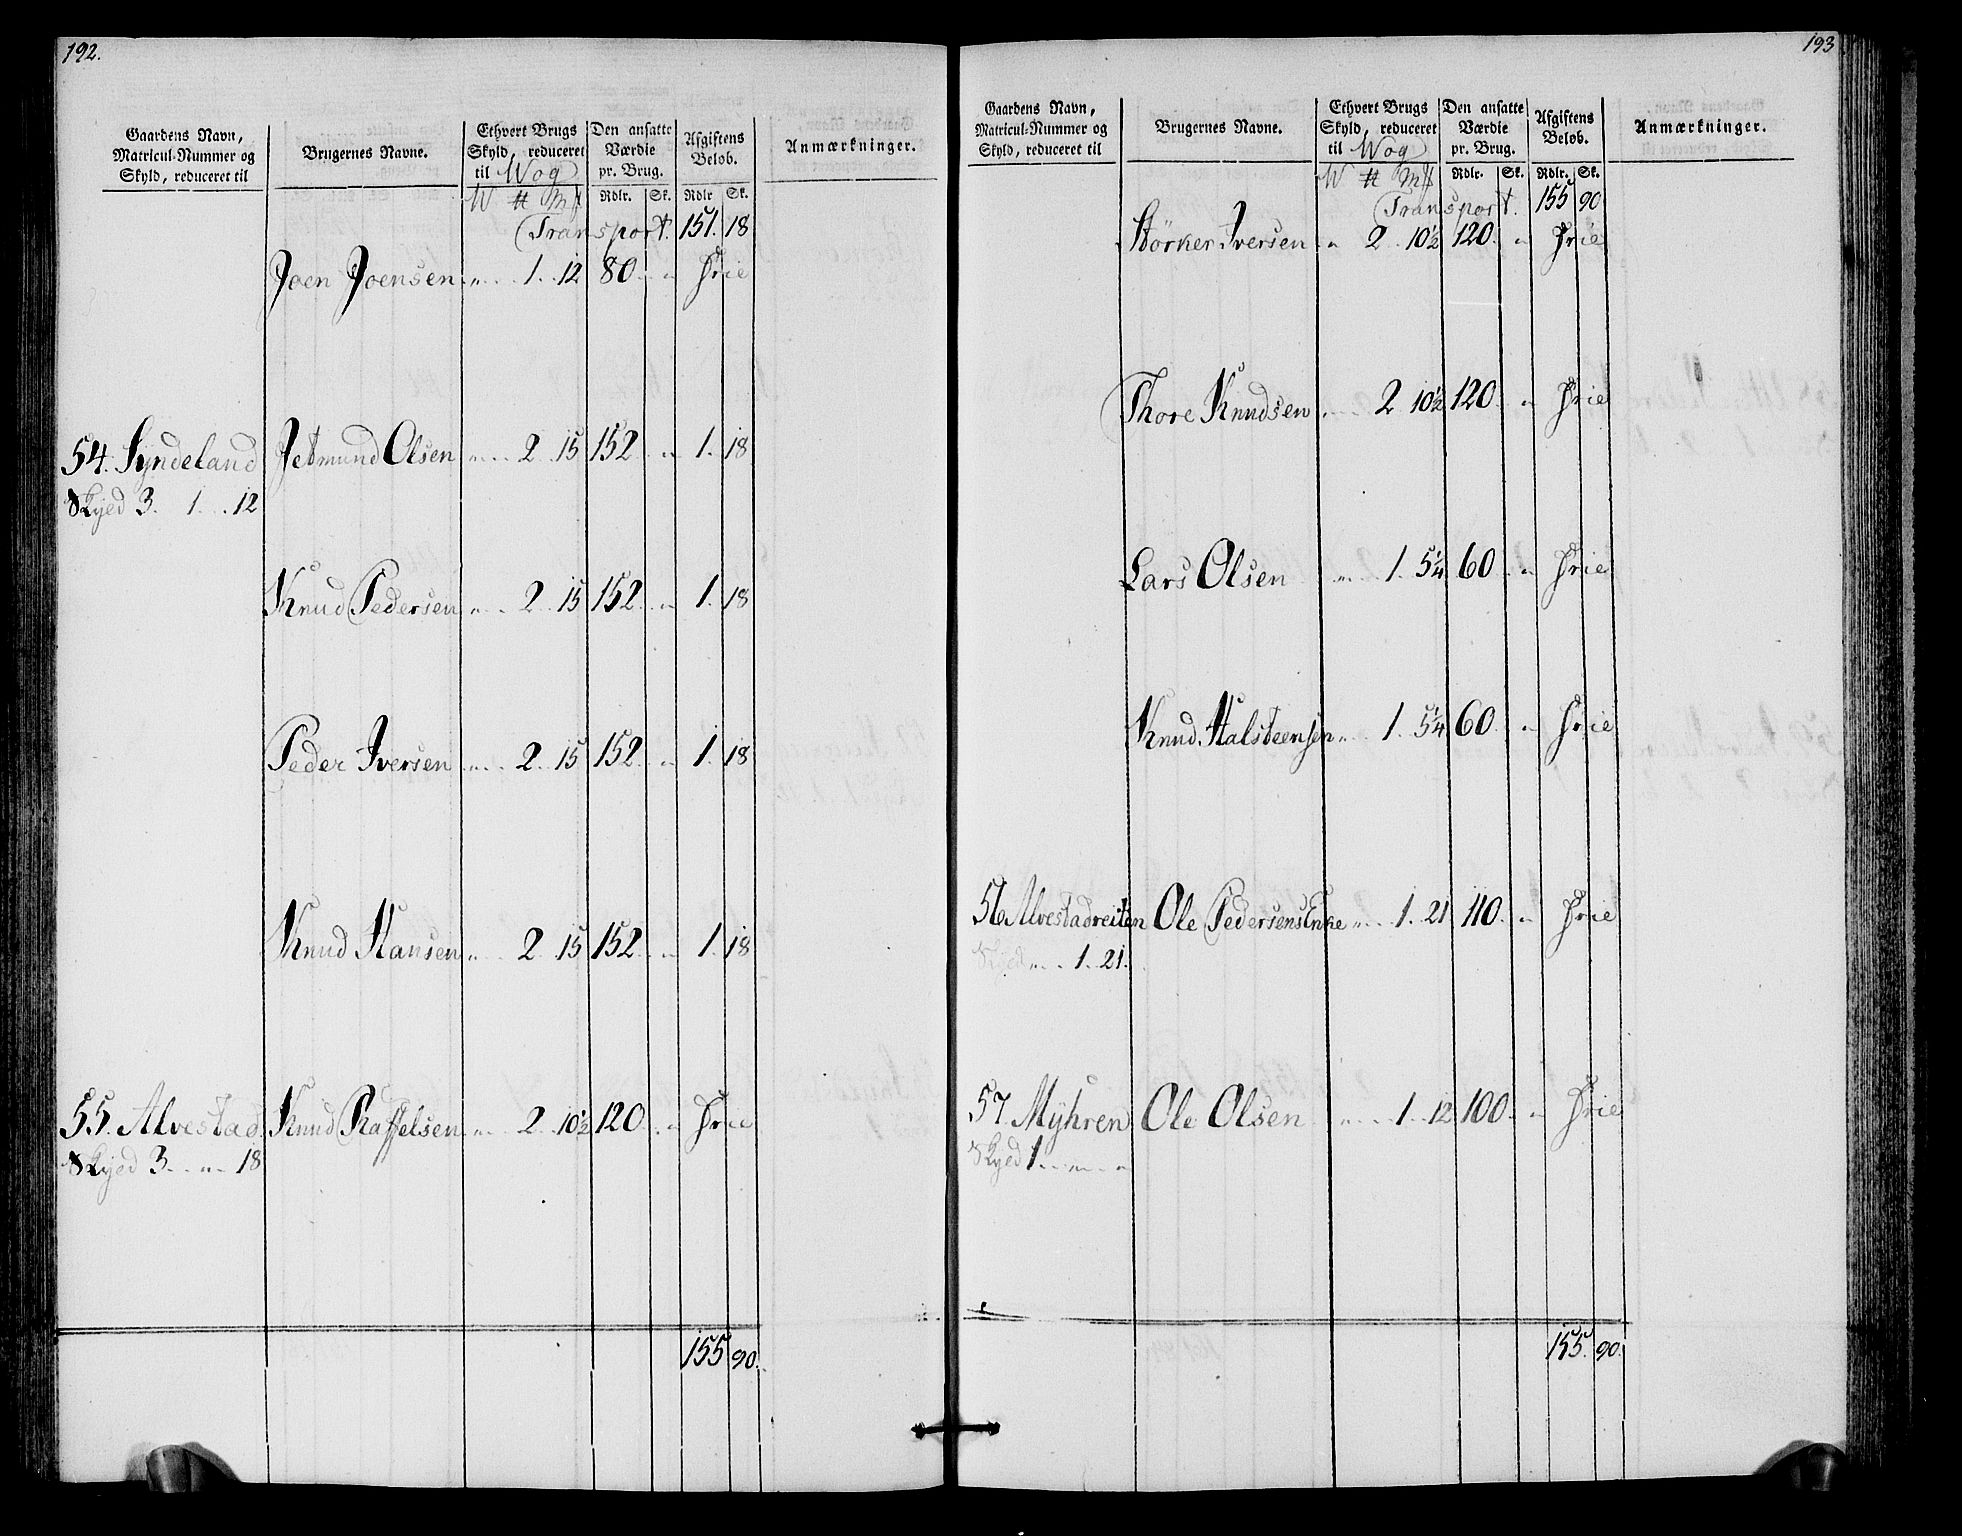 192.
Gaardens Navn, Matricul-Nummer og Skyld, reduceret til | Brugernes Navne. | Ethvert Brugs Skyld, reduceret til Wog | Den ansatte Værdie pr. Brug. | Afgiftens Beløb. | Anmærkninger.
W ℔ Mƒ | Rdlr. Sk. | Rdlr Sk.
Transport. 151. 18
Joen Joensen „ 1. 12 80 „ Frie
54. Syndeland Jetmund Olsen „ 2. 15 152 „ 1. 18
Skyld 3. 1. 12
Knud Pedersen „ 2. 15 152 „ 1. 18
Peder Iversen „ 2. 15 152 „ 1. 18
Knud Hansen „ 2. 15 152 „ 1. 18
55. Alvestad Knud Raffelsen „ 2. 10½ 120 „ Frie
Skyld 3. „ 18
155 90.
193
Gaardens Navn, Matricul-Nummer og Skyld, reduceret til | Brugernes Navne. | Ethvert Brugs Skyld, reduceret til Wog | Den ansatte Værdie pr. Brug. | Afgiftens Beløb. | Anmærkninger.
W ℔ Mƒ | Rdlr. Sk. | Rdlr. Sk.
Transport. 155 90
Störker Iversen „ 2. 10½ 120. „ Frie
Thore Knudsen „ 2 10½ 120. „ Frie
Lars Olsen „ 1. 5¼ 60 „ Frie
Knud Halsteensen „ 1. 5¼ 60 „ Frie
56 Alvestadreiten Ole Pedersens Enke „ 1. 21 110. „ Frie
Skyld „ 1. 21.
57 Mÿhren Ole Olsen „ 1. 12 100 „ Frie
Skyld 1. „ „
155. 90.